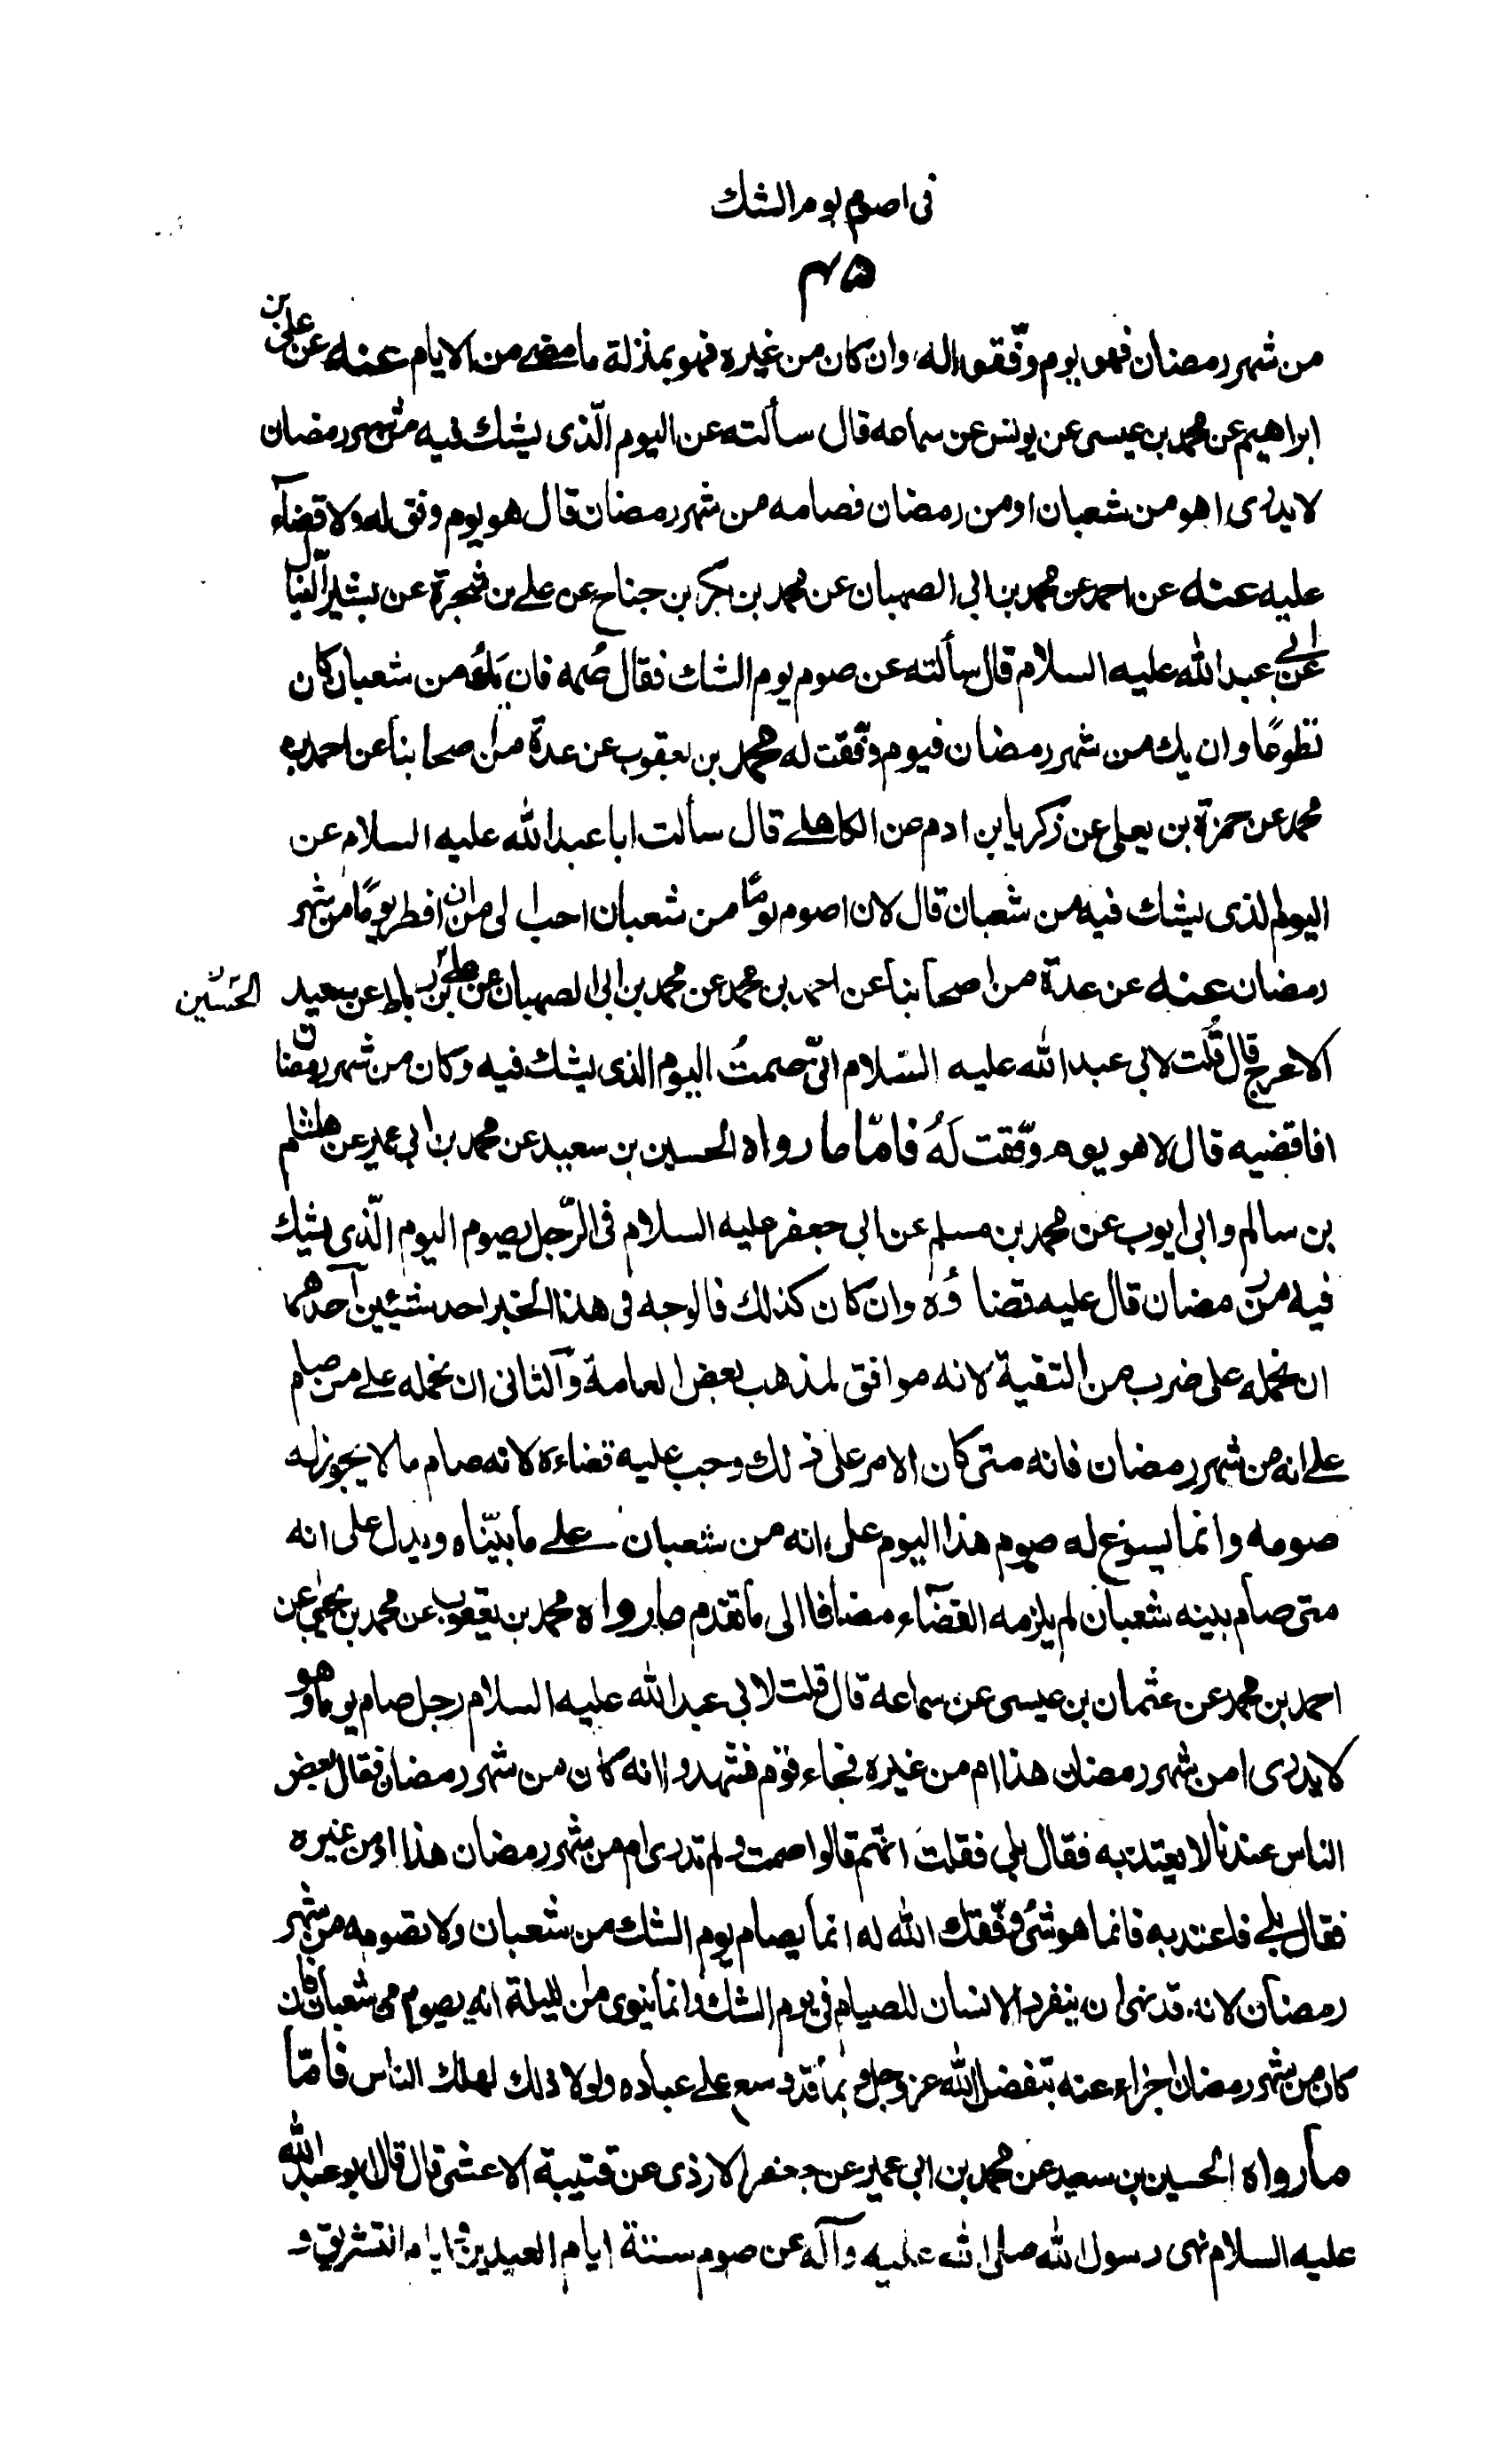 فى اصوم يوم الشك
۴۵
من شهر رمضان فهو يوم وفّقوا له وان كان من غيره فهو بمنزلة ما مضے من الايام عنه عن على بن
ابراهيم عن محمد بن عيسى عن يونس عن سماعه قال سألته عن اليوم الّذى يشك فيه من شهر رمضان
لا يدرى اهو من شعبان او من رمضان فصامه من شهر رمضان قال هو يوم وفق له ولا قضآء
عليه عنه عن احمد عن محمد بن ابى الصهبان عن محمد بن بكر بن جناح عن علے بن شجرة عن بشير النبّال
عن ابے عبد الله عليه السلام قال سألته عن صوم يوم الشك فقال صُمه فان يَكُ من شعبان كان
تطوعًا وان يك من شهر رمضان فيوم وفّقت له محمد بن يعقوب عن عدة من اصحابنا عن احمد بن
محمد عن حمزة بن يعلى عن زكريا بن ادم عن الكاهلے قال سألت ابا عبد الله عليه السلام عن
اليوم الذى يشك فيه من شعبان قال لان اصوم يومًا من شعبان احب الى من ان افطر يومًا من شهر
رمضان عنه عن عدة من اصحابنا عن احمد بن محمد عن محمد بن ابى الصهبان عن علے بن رباط عن سعيد
الحسين
الاعرج قال قُلت لابى عبد الله عليه السّلام انّى صمتُ اليوم الذى يشك فيه وكان من شهر رمضان
افاقضيه قال لا هو يوم وفّقت لَهُ فامّا ما رواه الحسين بن سعيد عن محمد بن ابى عمير عن هشام
بن سالم وابى ايوب عن محمد بن مسلم عن ابى جعفر عليه السلام فى الرّجل يصوم اليوم الّذى يشك
فيه من رمضان قال عليه قضاؤُه وان كان كذلك فالوجه فى هذا الخبر احد شيئين آحدهما
ان نحمله على ضرب من التقية لانه موافق لمذهب بعض العامة وآلثانى ان نحمله علے من صام
علے انه من شهر رمضان فانه متى كان الامر على ذلك وجب عليه قضاءه لانه صام ما لا يجوز له
صومه وانما يسوغ له صوم هذا اليوم على انه من شعبان علے ما بيّناه ويدل على انه
متى صام بنيه شعبان لم يلزمه القضآء مضافا الى ما تقدم ما رواه محمد بن يعقوب عن محمد بن يحيى عن
احمد بن محمد عن عثمان بن عيسى عن سماعه قال قلت لابى عبد الله عليه السلام رجل صام يوما وهو
لا يدرى امن شهر رمضان هذا ام من غيره فجاء قوم فشهدوا انه كان من شهر رمضان فقال بعض
الناس عندنا لا يعتد به فقال بلى فقلت انّهم قالوا صمت ولم تدرى ام من شهر رمضان هذا او من غيره
فقال بلے فاعتد به فانما هو شئ وفّقك الله له انما يصام يوم الشك من شعبان ولا تصومه من شهر
رمضان لانه قد نهى ان ينفرد الانسان للصيام فى يوم الشك وانما ينوى من الليلة انه يصوم من شعبان فان
كان من شهر رمضان اجزاء عنه بتفضل الله عز وجل وبما قد وسع علے عباده ولولا ذلك لهلك الناس فامّا
ما رواه الحسين بن سعيد عن محمد بن ابى عمير عن جعفر الازدى عن قتيبة الاعشى قال قال ابو عبد الله
عليه السلام نهى رسول الله صلى الله عليه وآله عن صوم ستة ايام العيدين وايام التشريق و